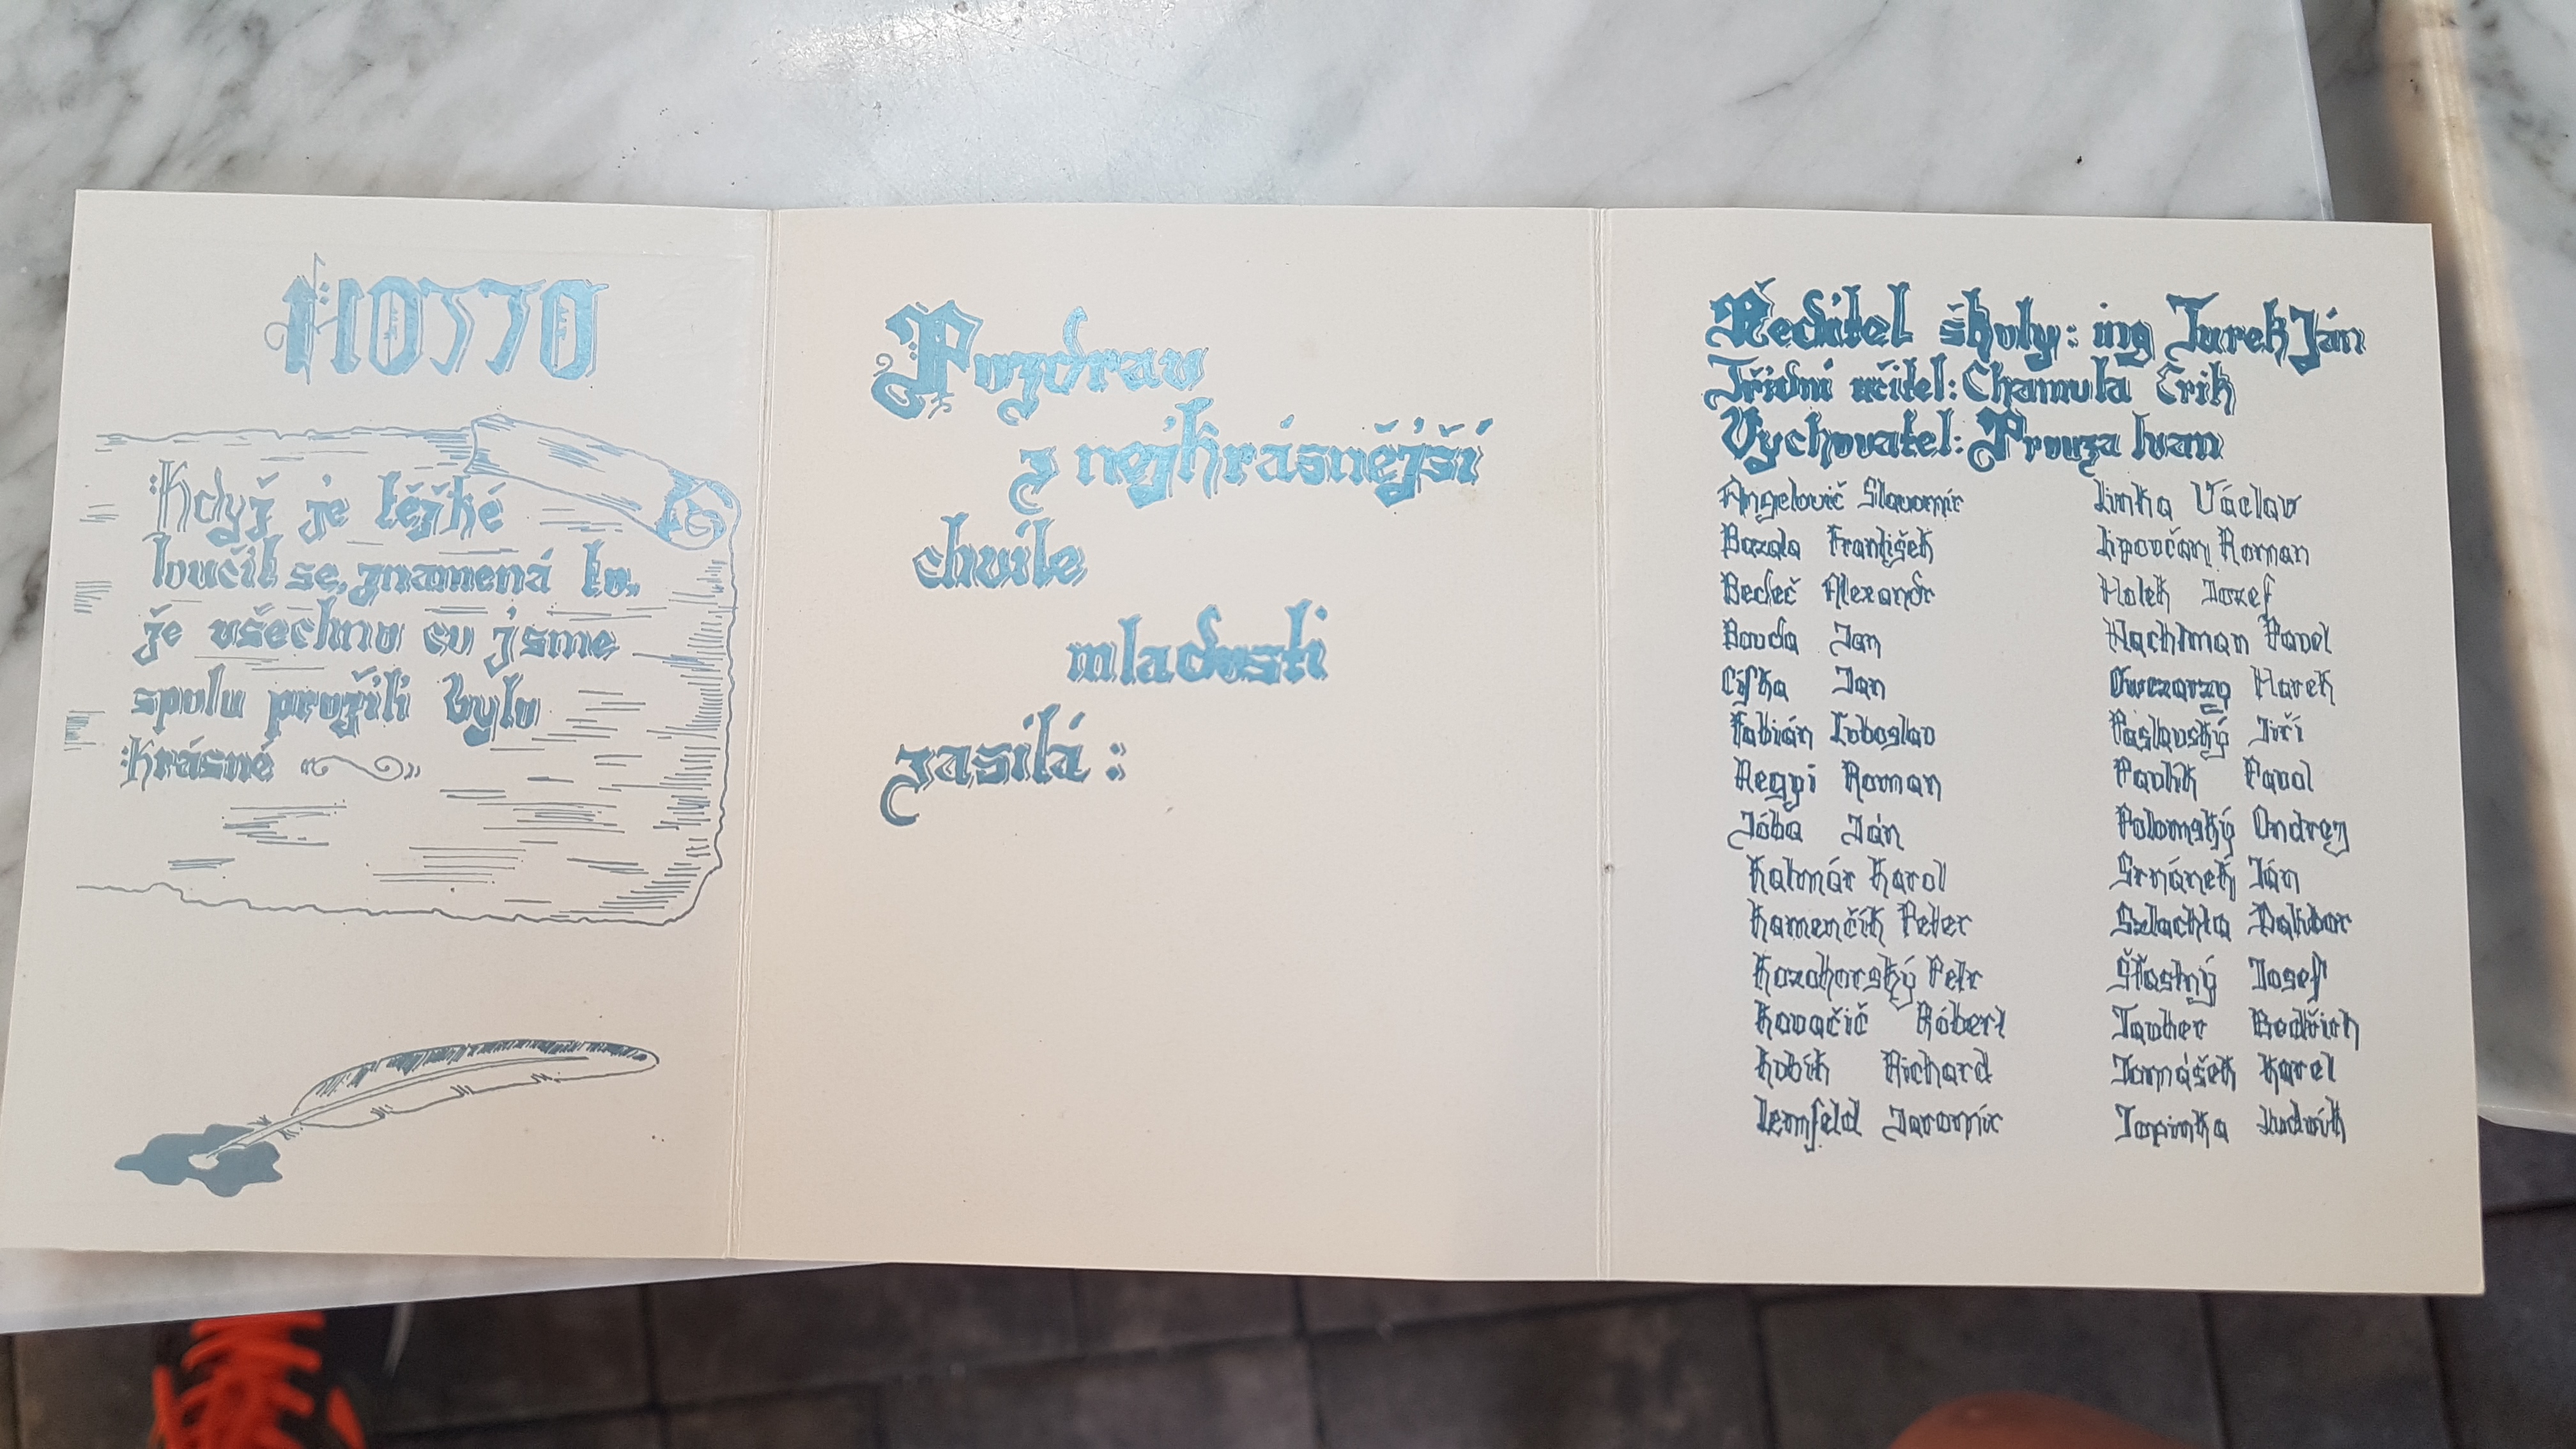 MOTTO
Když je těžké
loučit se, znamená to,
že všechno co jsme
spolu prožili bylo
krásné
Pozdrav
z nejkrásnější
chvíle
mladosti
zasílá:
Ředitel školy: ing Turek Ján
Třídní učitel: Chamula Erik
Vychovatel: Prouza Ivan
Angelovič Slavomír
Bazala František
Bedeč Alexandr
Bouda Jan
Cífka Jan
Fabián Ľuboslav
Hegyi Roman
Jóba Ján
Kalmár Karol
Kamenčík Peter
Kozohorský Petr
Kovačič Róbert
Kubík Richard
Lemfeld Jaromír
Linka Václav
Lipovčan Roman
Molek Jozef
Nachtman Pavel
Owczarzy Marek
Paslavský Jiří
Pavlik Pavol
Polomský Ondrej
Srnánek Ján
Szlachta Dalibor
Šťastný Josef
Tauber Bedřich
Tomášek Karel
Topinka Ludvík